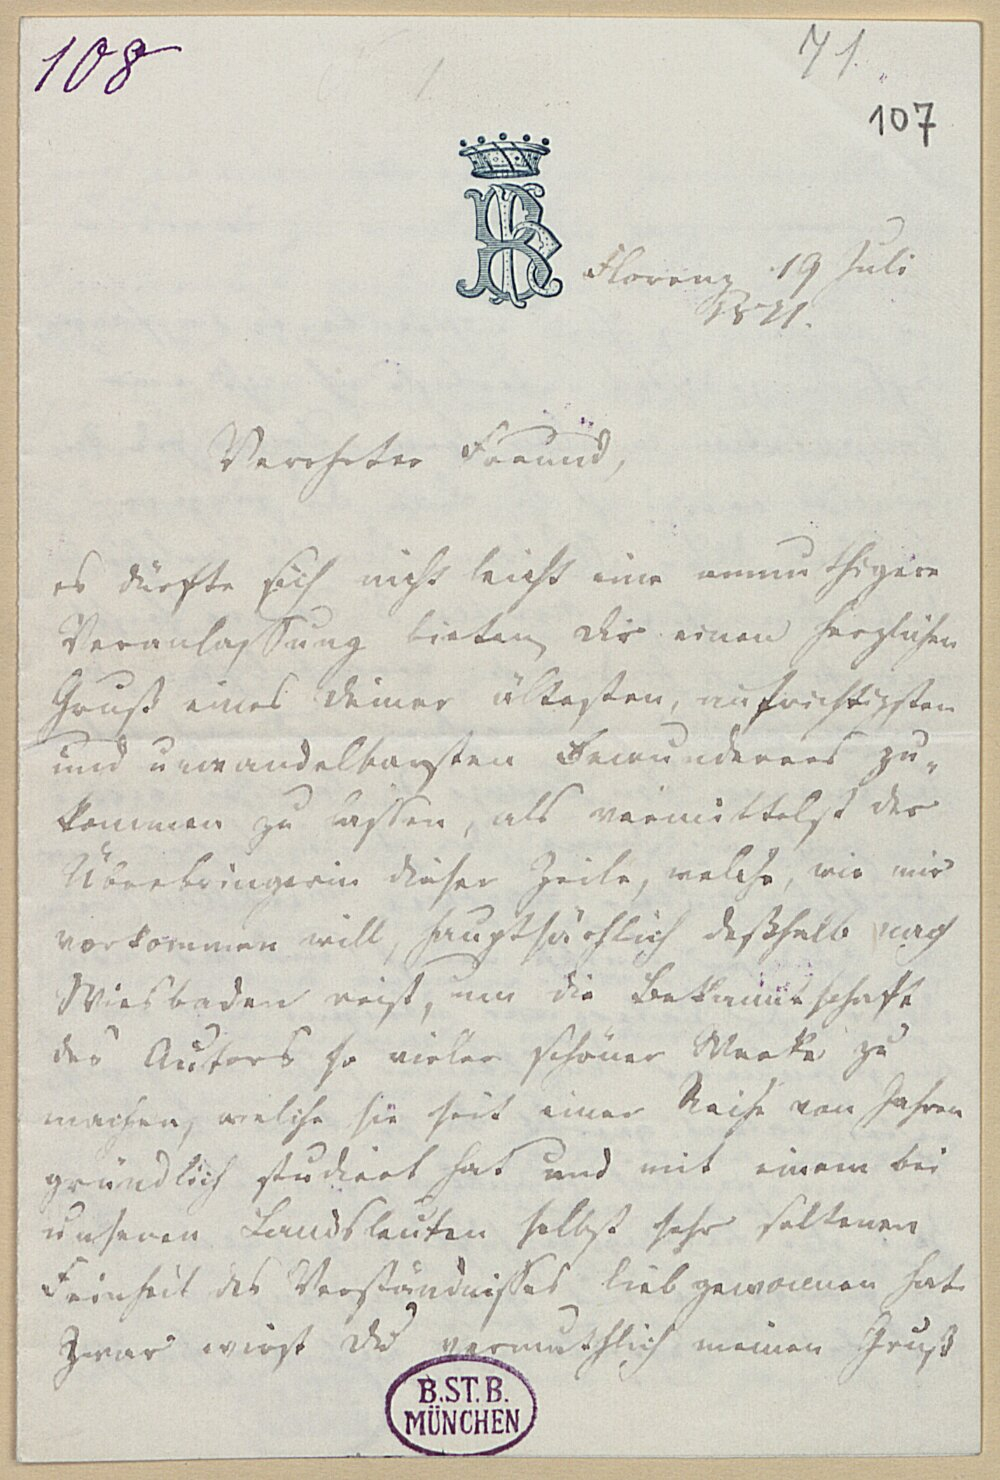 108
71.
107
Florenz 19 Juli
1871.
Verehrter Freund,
es dürfte sich nicht leicht eine anmuthigere
Veranlaßung bieten, dir einen herzlichen
Gruß eines deiner ältesten, aufrichtigsten
und unwandelbarsten Bewunderers zu-
kommen zu lassen, als vermittelst der
Überbringerin dieser Zeile, welche, wie mir
vorkommen will, hauptsächlich deßhalb nach
Wiesbaden reist, um die Bekanntschaft
des Autors so vieler schöner Werke zu
machen, welche sie seit einer Reihe von Jahren
gründlich studiert hat und mit einem bei
unseren Landsleuten selbst sehr seltenen
Feinheit des Verständnisses lieb gewonnen hat
Zwar wirst du vermuthlich meinen Gruß
B.ST.B.
MÜNCHEN